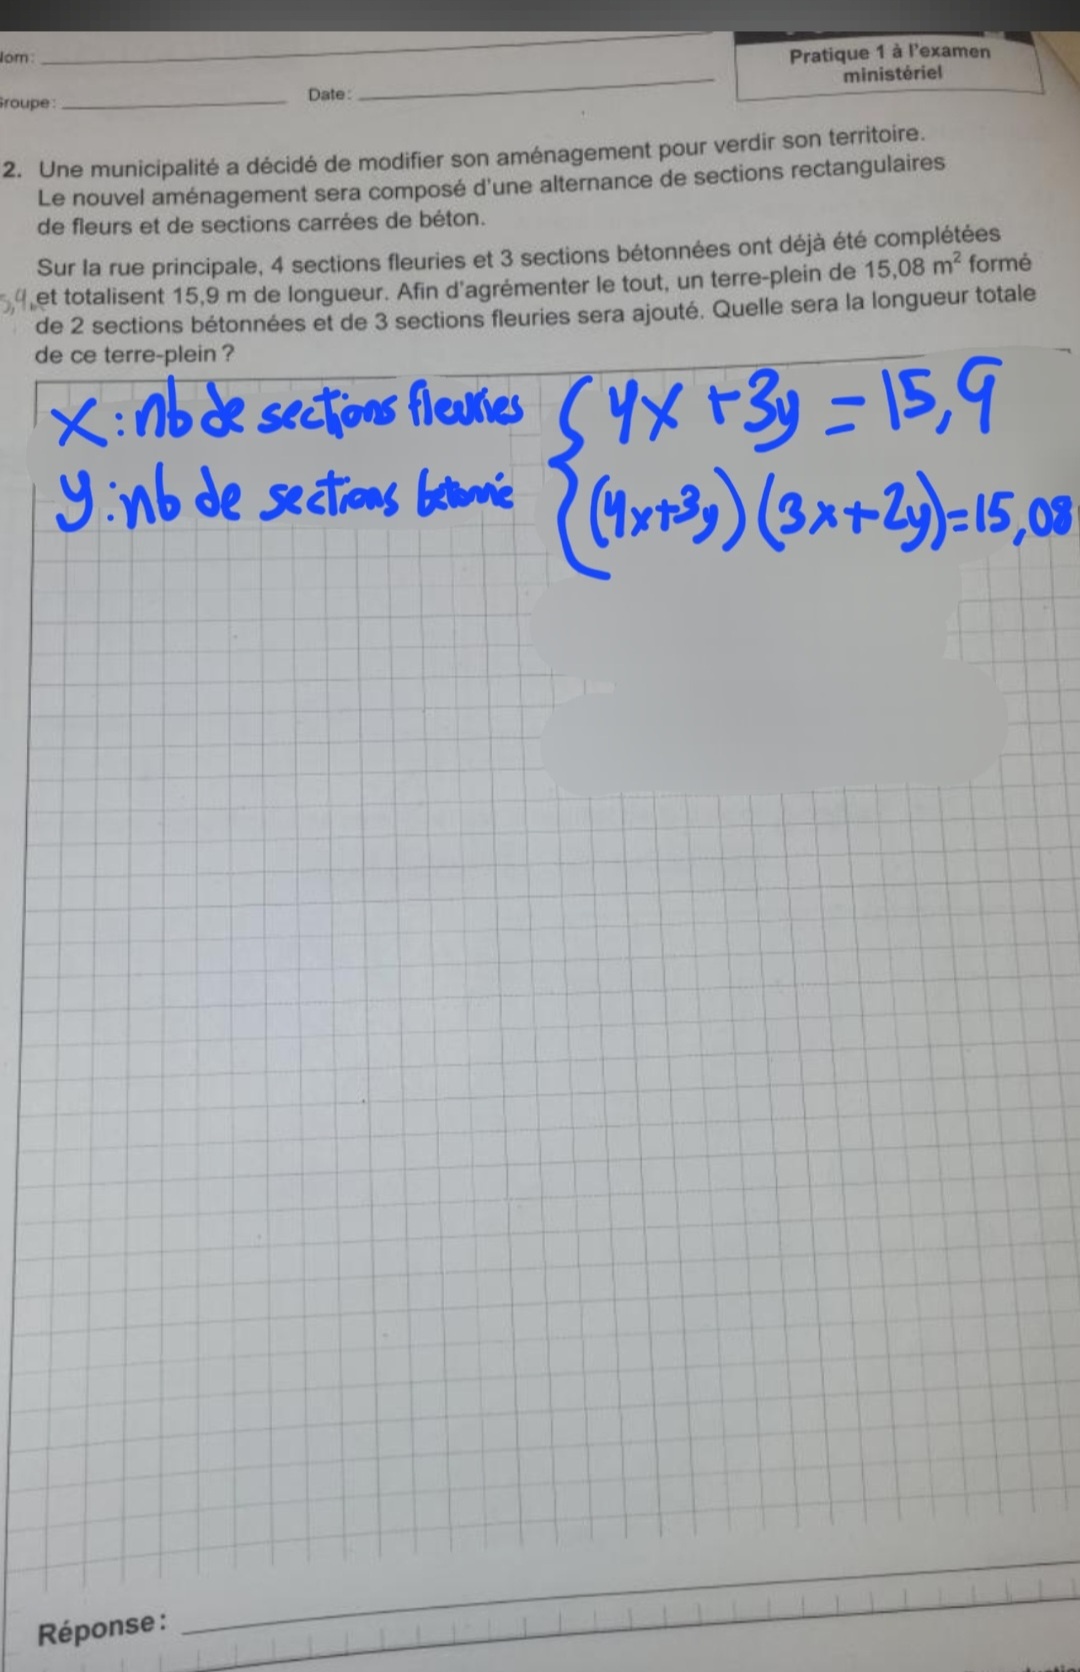 Nom:
Groupe:
Date:
Pratique 1 à l'examen
ministériel
2. Une municipalité a décidé de modifier son aménagement pour verdir son territoire.
Le nouvel aménagement sera composé d'une alternance de sections rectangulaires
de fleurs et de sections carrées de béton.
Sur la rue principale, 4 sections fleuries et 3 sections bétonnées ont déjà été complétées
et totalisent 15,9 m de longueur. Afin d'agrémenter le tout, un terre-plein de 15,08 m² formé
de 2 sections bétonnées et de 3 sections fleuries sera ajouté. Quelle sera la longueur totale
de ce terre-plein ?
x : nb de sections fleuries { 4x + 3y = 15,9
y : nb de sections bétonnée (4x+3y)(3x+2y)=15,08
Réponse: